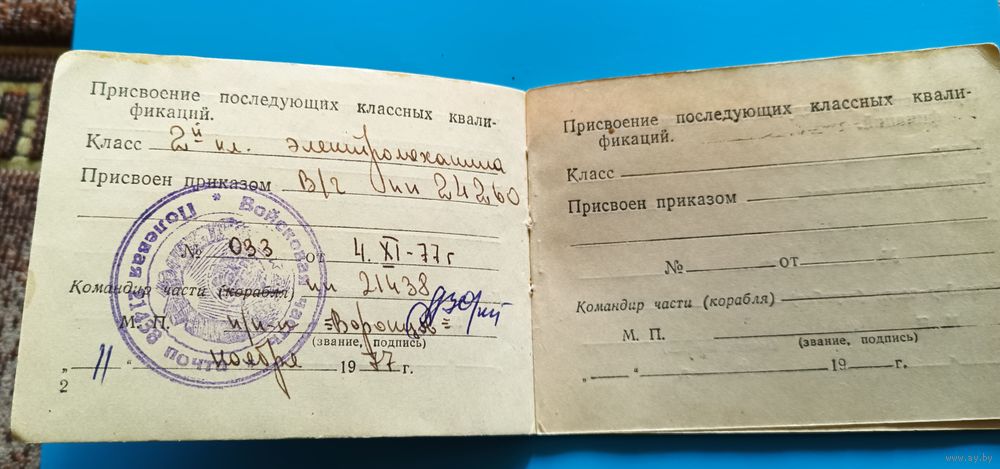 Присвоение последующих классных квали-
фикаций.
Класс 2й кл. электромеханика
Присвоен приказом В/ч пп 24260
№ 033 от 4. XI-77г
Командир части (корабля) пп 21438
М. П. п/п-к =Воронцов=
(звание, подпись)
„ 11 “ ноября 1977 г.
2
Войсковая часть * Полевая почта 21438
Присвоение последующих классных квали-
фикаций.
Класс
Присвоен приказом
№ от
Командир части (корабля)
М. П.
(звание, подпись)
„ “ 19 г.
www.ay.by